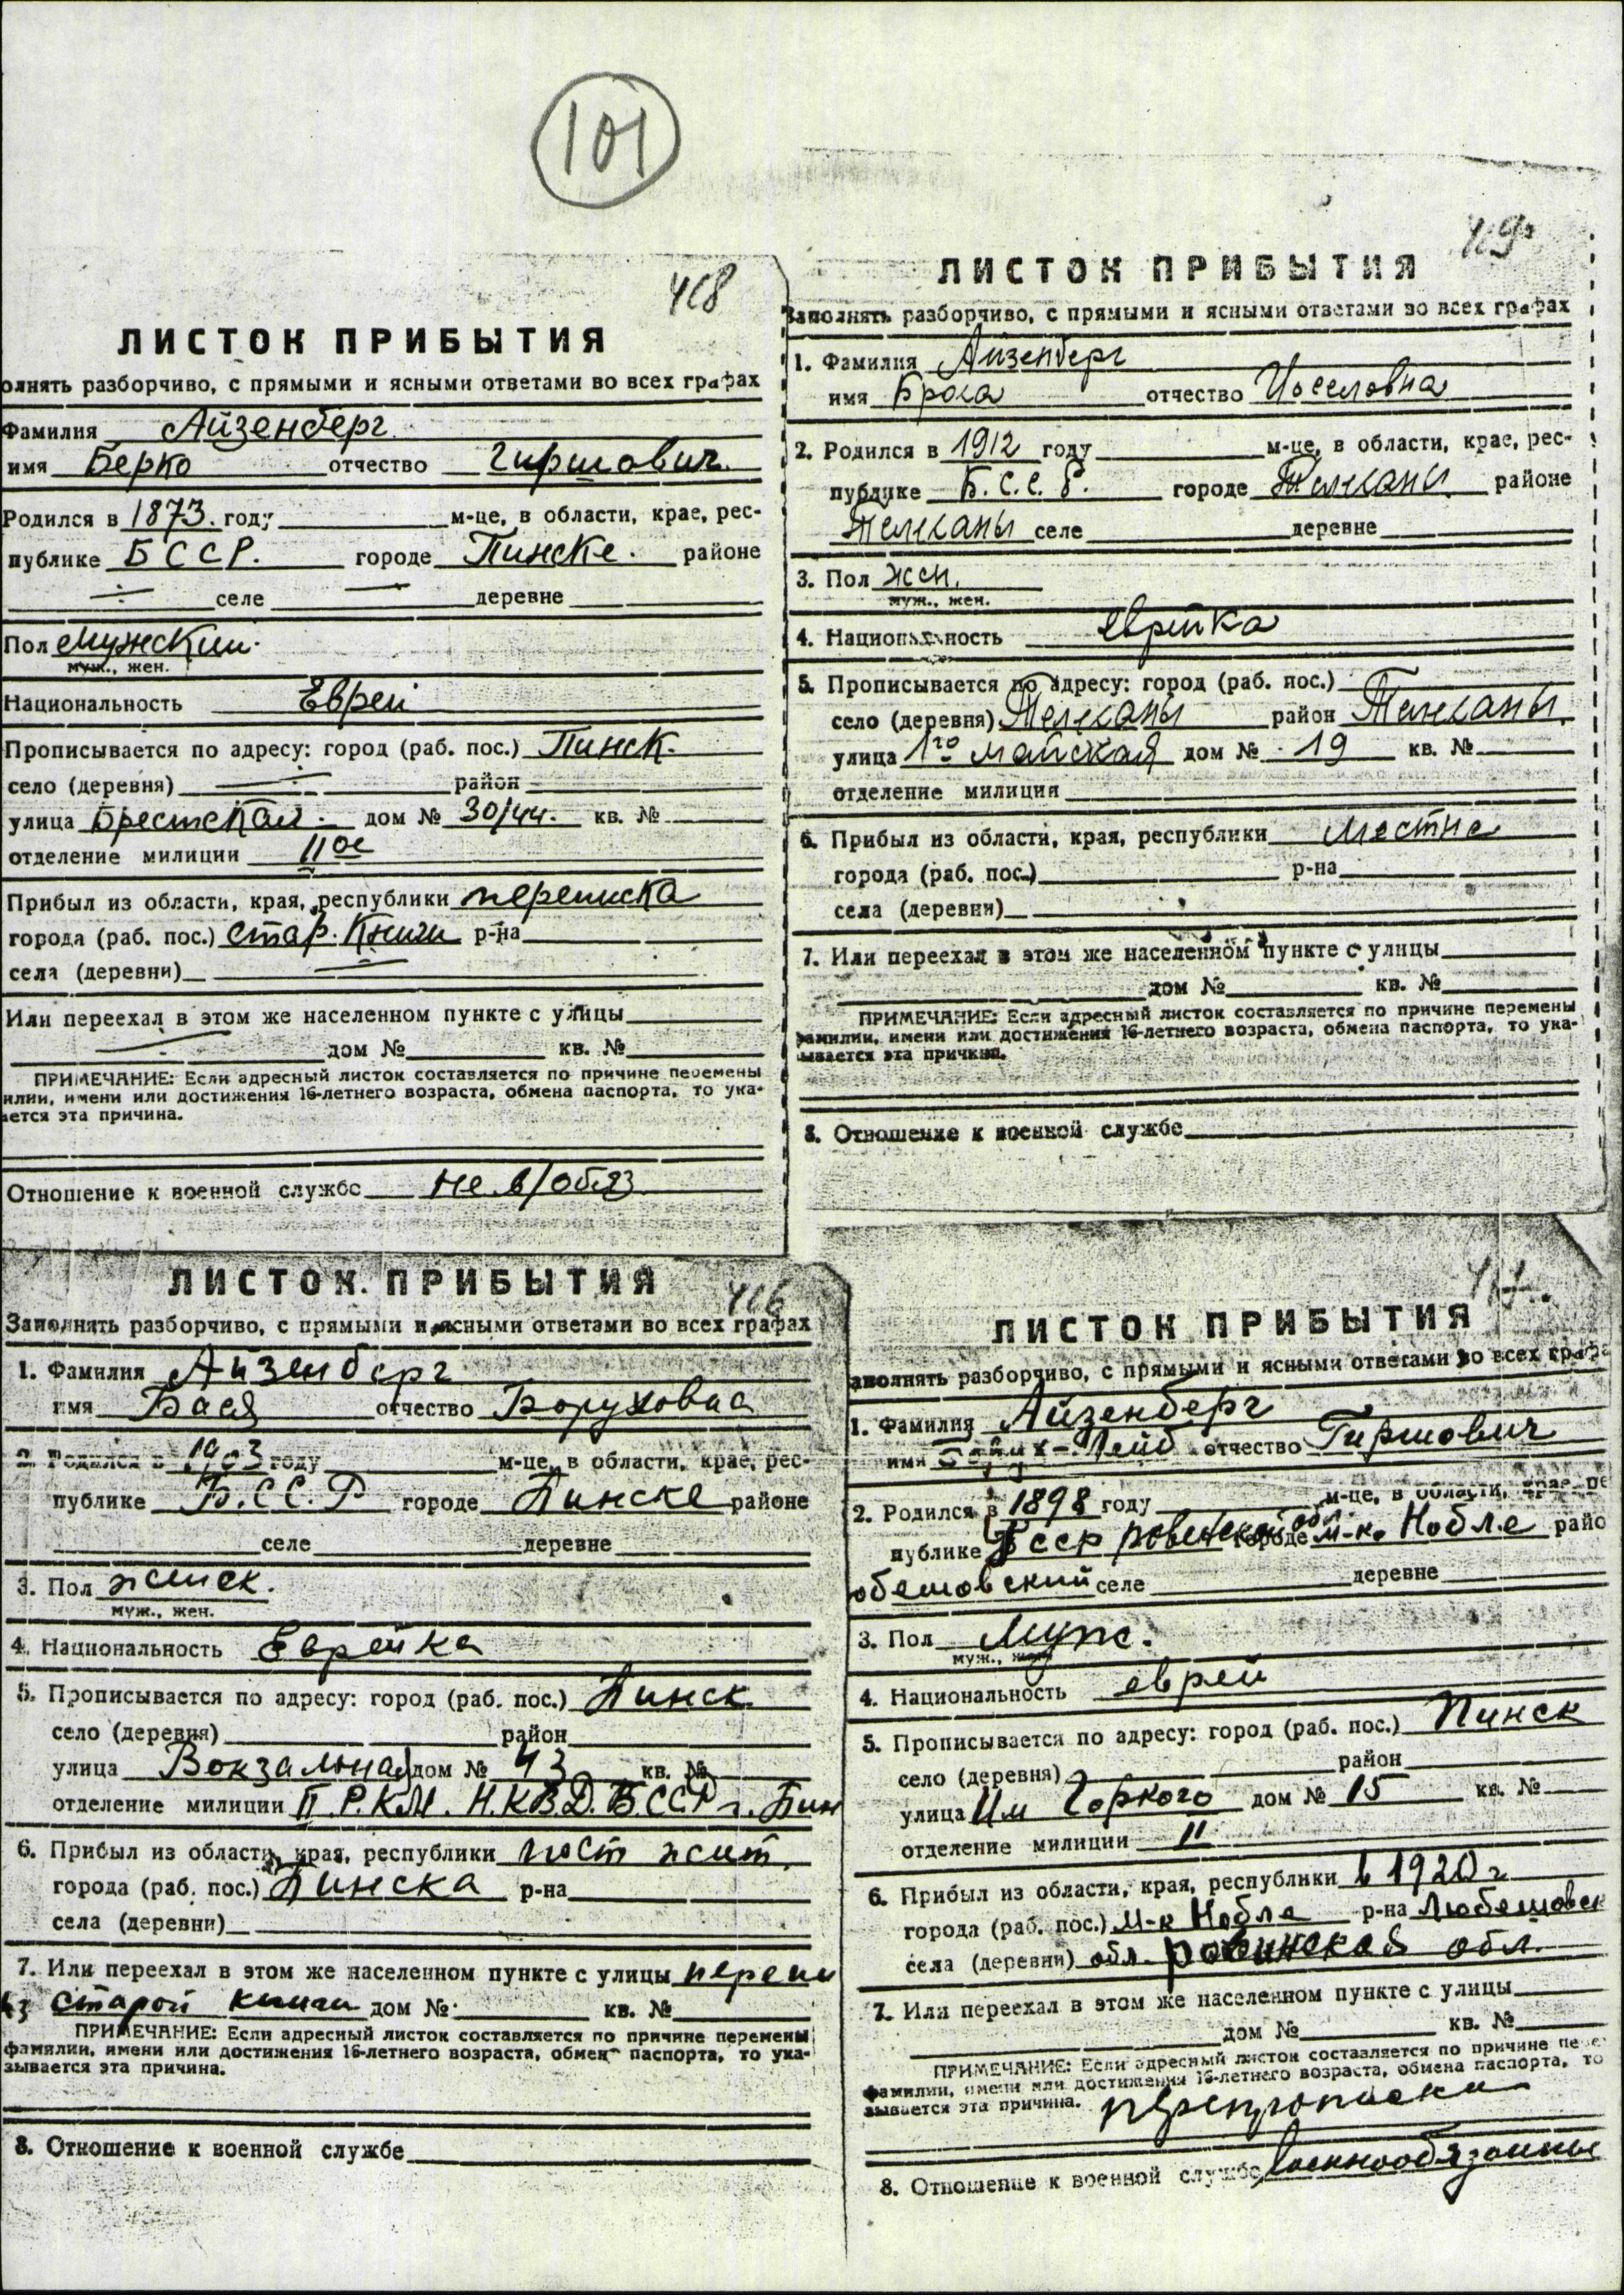 101
418
ЛИСТОК ПРИБЫТИЯ
олнять разборчиво, с прямыми и ясными ответами во всех графах
Фамилия Айзенберг
имя Берко отчество Гиршович.
Родился в 1873. году м-це, в области, крае, рес-
публике БССР. городе Пинске. районе
селе деревне
Пол Мужский.
муж., жен.
Национальность Еврей
Прописывается по адресу: город (раб. пос.) Пинск.
село (деревня) район
улица Брестская. дом № 30/44. кв. №
отделение милиции IIое
Прибыл из области, края, республики переписка
города (раб. пос.) стар. Книги р-на
села (деревни)
Или переехал в этом же населенном пункте с улицы
дом № кв. №
ПРИМЕЧАНИЕ: Если адресный листок составляется по причине перемены
илии, имени или достижения 16-летнего возраста, обмена паспорта, то ука-
ается эта причина.
Отношение к военной службе не в/обяз
419
ЛИСТОК ПРИБЫТИЯ
Заполнять разборчиво, с прямыми и ясными ответами во всех графах
1. Фамилия Айзенберг
имя Броха отчество Иоселовна
2. Родился в 1912 году м-це, в области, крае, рес-
публике Б.С.С.Р. городе Телеханы районе
Телеханы селе деревне
3. Пол жен.
муж., жен.
4. Национальность еврейка
5. Прописывается по адресу: город (раб. пос.)
село (деревня) Телеханы район Телеханы
улица 1го Майская дом № 19 кв. №
отделение милиция
6. Прибыл из области, края, республики Местне
города (раб. пос.) р-на
села (деревни)
7. Или переехал в этом же населенном пункте с улицы
дом № кв. №
ПРИМЕЧАНИЕ: Если адресный листок составляется по причине перемены
фамилии, имени или достижения 16-летнего возраста, обмена паспорта, то ука-
зывается эта причина.
8. Отношение к военной службе
416
ЛИСТОК ПРИБЫТИЯ
Заполнять разборчиво, с прямыми и ясными ответами во всех графах
1. Фамилия Айзенберг
имя Бася отчество Боруховна
2. Родился в 1903 году м-це, в области, крае, рес-
публике Б.С.С.Р городе Пинске районе
селе деревне
3. Пол женск.
муж., жен.
4. Национальность Еврейка
5. Прописывается по адресу: город (раб. пос.) Пинск
село (деревня) район
улица Вокзальная дом № 43 кв. №
отделение милиции II Р.К.М. Н.К.В.Д. БССР г. Пин
6. Прибыл из области, края, республики мест жит.
города (раб. пос.) Пинска р-на
села (деревни)
7. Или переехал в этом же населенном пункте с улицы переп
из старой книги дом № кв. №
ПРИМЕЧАНИЕ: Если адресный листок составляется по причине перемены
фамилии, имени или достижения 16-летнего возраста, обмена паспорта, то ука-
зывается эта причина.
8. Отношение к военной службе
417
ЛИСТОК ПРИБЫТИЯ
аполнять разборчиво, с прямыми и ясными ответами во всех графа
1. Фамилия Айзенберг
имя Борух-Лейб отчество Гиршович
2. Родился в 1898 году м-це, в области, крае, ре
публике БССР Ровенской обл. городе м-ко Нобле райо
обешовский селе деревне
3. Пол Муж.
муж., жен.
4. Национальность еврей
5. Прописывается по адресу: город (раб. пос.) Пинск
село (деревня) район
улица Им Горкого дом № 15 кв. №
отделение милиции II
6. Прибыл из области, края, республики в 1920 г
города (раб. пос.) м-к Нобла р-на Любешовск
села (деревни) обл. Ровинской обл.
7. Или переехал в этом же населенном пункте с улицы
дом № кв. №
ПРИМЕЧАНИЕ: Если адресный листок составляется по причине пере
фамилии, имени или достижения 16-летнего возраста, обмена паспорта, то
зывается эта причина. перепрописки
8. Отношение к военной службе Военнообязанны